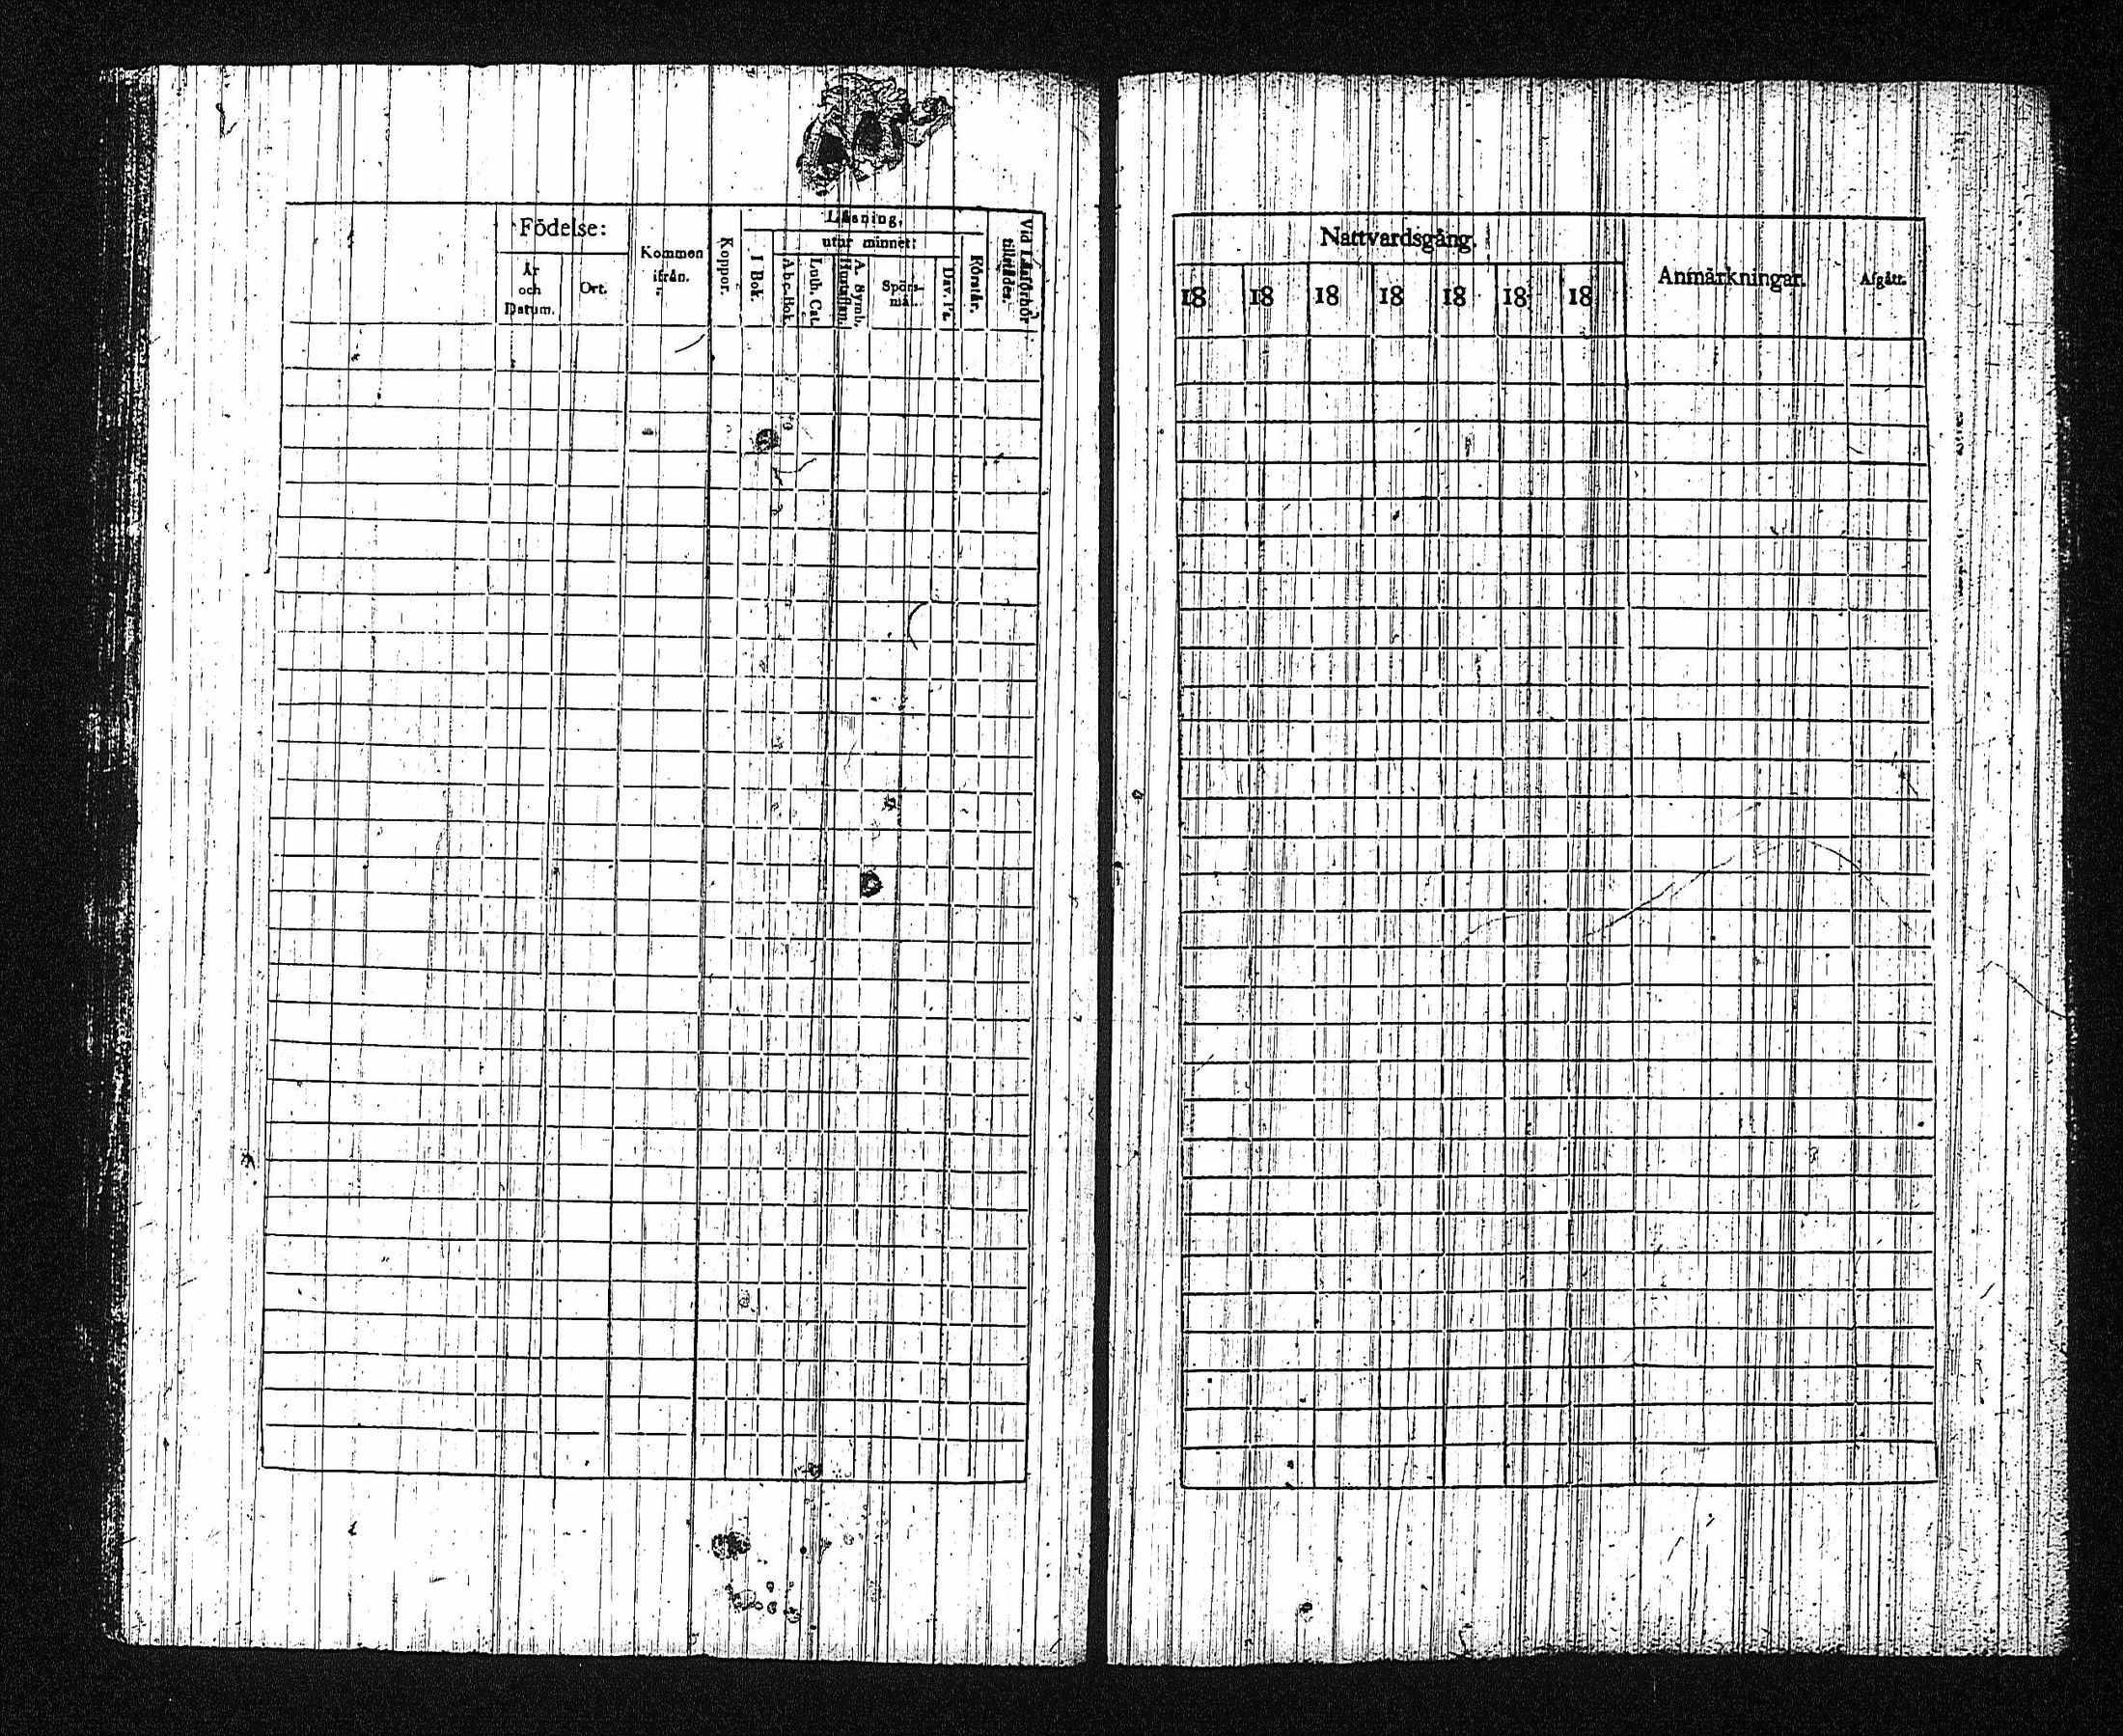 Födelse:
År
och
Datum.
Ort.
Kommen
ifrån.
Koppor.
Läsning,
I Bok.
utur minnet:
A.b.c.-Bok.
Luth. Cat.
A. Symb.
Hustaflan.
Spörs-
mål.
Dav. Ps.
Förstår.
Vid Läsförhör
tillstädes.
Nattvardsgång.
18 18 18 18 18 18 18
Anmärkningar.
Afgått.